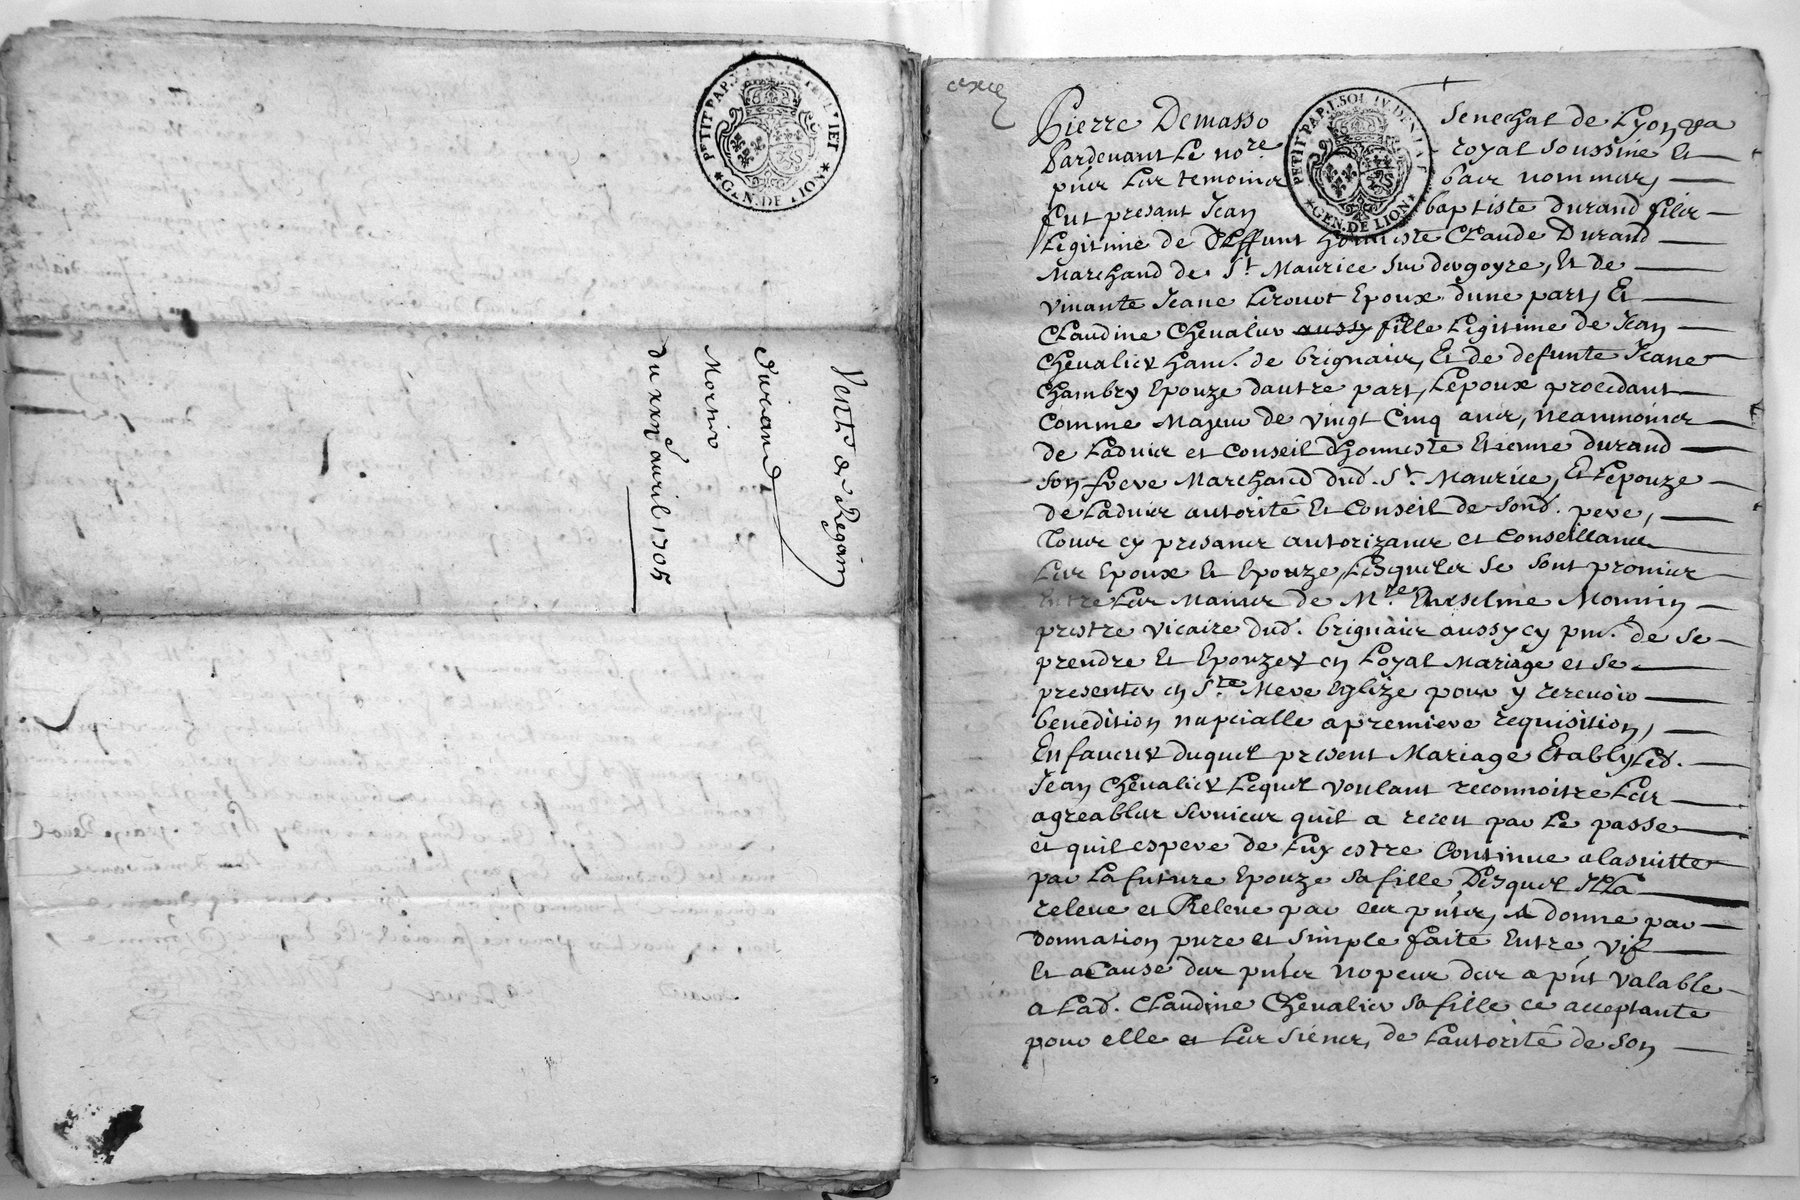 PETIT PAP.
GEN. DE LION
Vente
Durand
Mornio
du xxx^e auril 1705
PETIT PAP. I. SOL IV. DEN. LA F.
GEN. DE LION
Pierre Demasso Senechal de Lyon
Pardeuant Le no^re royal soussine Et
pnts Les temoins bas nommes,
fut present Jean baptiste durand fils
Legitime de Deffunt honneste Claude Durand
Marchand de S^t Maurice sur dargoyre, Et de
viuante Jeane Epoux dune part, Et
Claudine Cheualier aussy fille Legitime de Jean
Cheualier hant. de brignais, Et de defunte Jeane
Chambry Epouze dautre part, Lepoux procedant
Comme Majeur de vingt Cinq ans, neanmoins
de Laduis et Conseil dhonneste Etienne durand
son frere Marchand dud. S^t. Maurice, Et Lepouze
de Laduis autorité Et Conseil de sond. pere,
Tous cy presans autorizans et Conseillans
Les Epoux Et Epouze, Lesquels se sont promis
Entre Les Mains de M^re Enselme Monnin
prestre vicaire dud. brignais aussy cy pnt. de se
prendre Et Epouzer en Loyal Mariage et se
presenter en S^te Mere Eglize pour y receuoir
benedition nupcialle a premiere requisition,
En faueur duquel present Mariage Etably Led.
Jean Cheualier Lequel voulant reconnoitre Les
agreables seruices quil a receu par Le passe
et quil espere de Luy estre Continue alasuitte
par La future Epouze sa fille Desquels Il La
releue et Releue par ces pntes, A donne par
donnation pure et simple faite Entre vifs
Et aCause des pntes nopces des a pnt valable
a Lad. Claudine Cheualier sa fille ce acceptante
pour elle et Les siens, de Lautorité de son